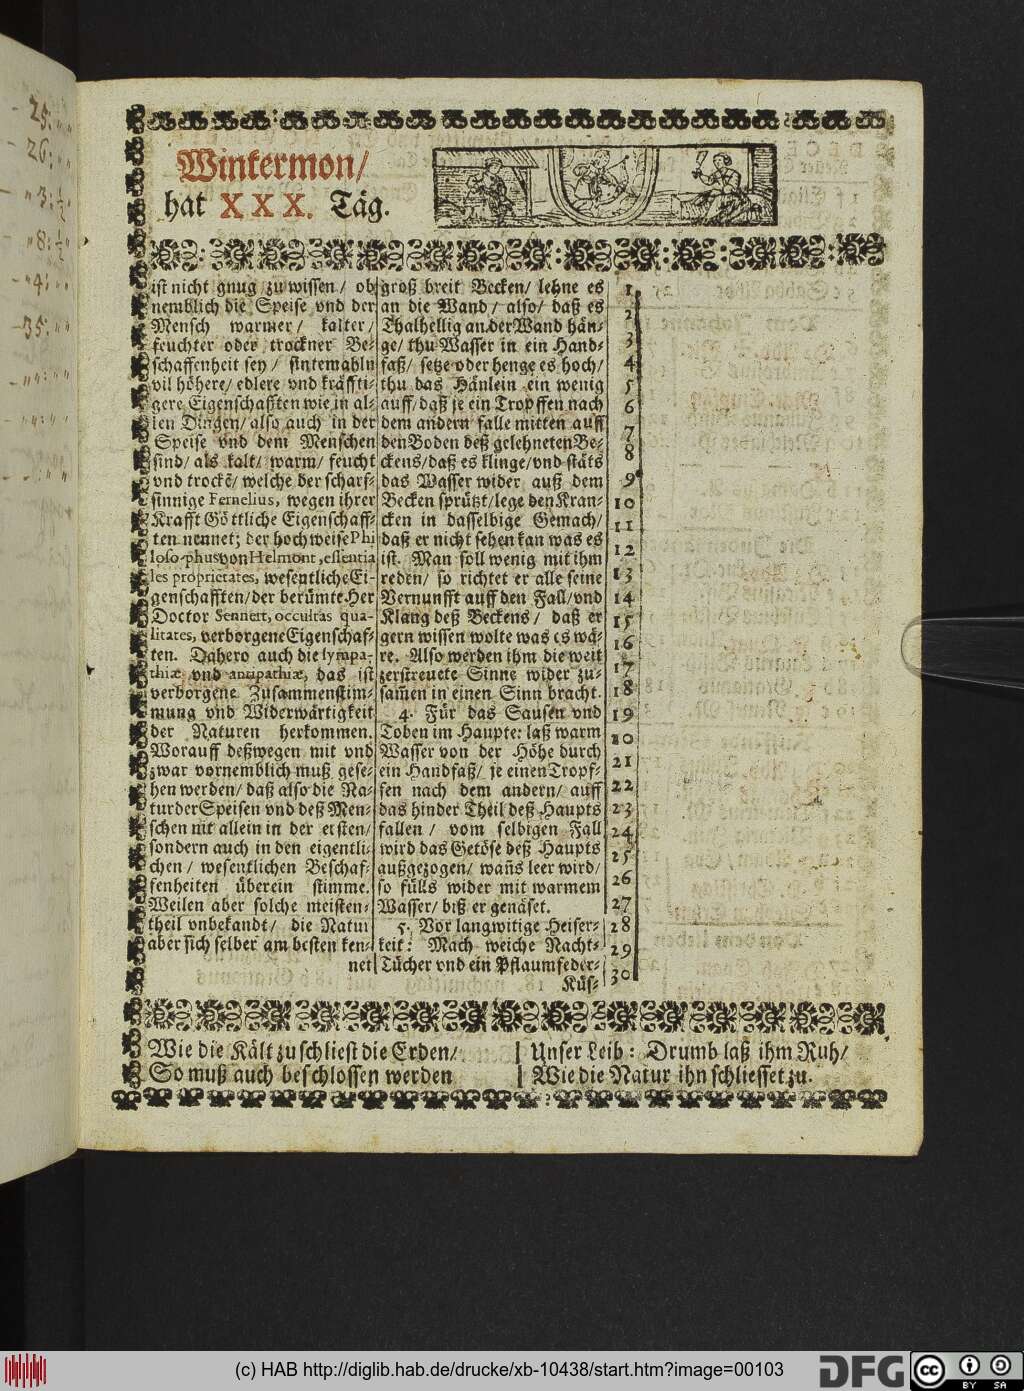 Wintermon/
hat XXX. Täg.
ist nicht gnug zu wissen/ ob
nemblich die Speise vnd der
Mensch warmer/ kalter/
feuchter oder trockner Be-
schaffenheit sey/ sintemahln
vil höhere/ edlere vnd kräffti-
gere Eigenschafften wie in al-
len Dingen/ also auch in der
Speise vnd dem Menschen
sind/ als kalt/ warm/ feucht
vnd trockē/ welche der scharf-
sinnige Fernelius, wegen ihrer
Krafft Göttliche Eigenschaff-
ten nennet; der hochweise Phi
loso-phus von Helmont, essentia
les proprietates, wesentliche Ei-
genschafften/ der berümte Her
Doctor Sennert, occultas qua-
litates, verborgene Eigenschaf-
ten. Dahero auch die sympa-
thiæ vnd antipathiæ, das ist
verborgene Zusammenstim-
mung vnd Widerwärtigkeit
der Naturen herkommen.
Worauff deßwegen mit vnd
zwar vornemblich muß gese-
hen werden/ daß also die Na-
tur der Speisen vnd deß Men-
schen nit allein in der ersten/
sondern auch in den eigentli-
chen/ wesentlichen Beschaf-
fenheiten überein stimme.
Weilen aber solche meisten-
theil vnbekandt/ die Natur
aber sich selber am besten ken-
net
groß breit Becken/ lehne es
an die Wand/ also/ daß es
Thalhellig an der Wand hän-
ge/ thu Wasser in ein Hand-
faß/ setze oder henge es hoch/
thu das Hänlein ein wenig
auff/ daß je ein Tropffen nach
dem andern falle mitten auff
den Boden deß gelehneten Be-
ckens/ daß es klinge/ vnd stäts
das Wasser wider auß dem
Becken sprützt/ lege den Kran-
cken in dasselbige Gemach/
daß er nicht sehen kan was es
ist. Man soll wenig mit ihm
reden/ so richtet er alle seine
Vernunfft auff den Fall/ vnd
Klang deß Beckens/ daß er
gern wissen wolte was es wä-
re. Also werden ihm die weit
zerstreuete Sinne wider zu-
sam̄en in einen Sinn bracht.
4. Für das Sausen vnd
Toben im Haupte: laß warm
Wasser von der Höhe durch
ein Handfaß/ je einen Tropf-
fen nach dem andern/ auff
das hinder Theil deß Haupts
fallen/ vom selbigen Fall
wird das Getöse deß Haupts
außgezogen/ wañs leer wird/
so fülls wider mit warmem
Wasser/ biß er genäset.
5. Vor langwitige Heiser-
keit: Mach weiche Nacht-
Tücher vnd ein Pflaumfeder-
Küs-
1
2
3
4
5
6
7
8
9
10
11
12
13
14
15
16
17
18
19
20
21
22
23
24
25
26
27
28
29
30
Wie die Kält zuschliest die Erden/
So muß auch beschlossen werden
Unser Leib: Drumb laß ihm Ruh/
Wie die Natur ihn schliesset zu.
25
26
3 ½
8 ½
4
35
(c) HAB http://diglib.hab.de/drucke/xb-10438/start.htm?image=00103
DFG
cc BY SA